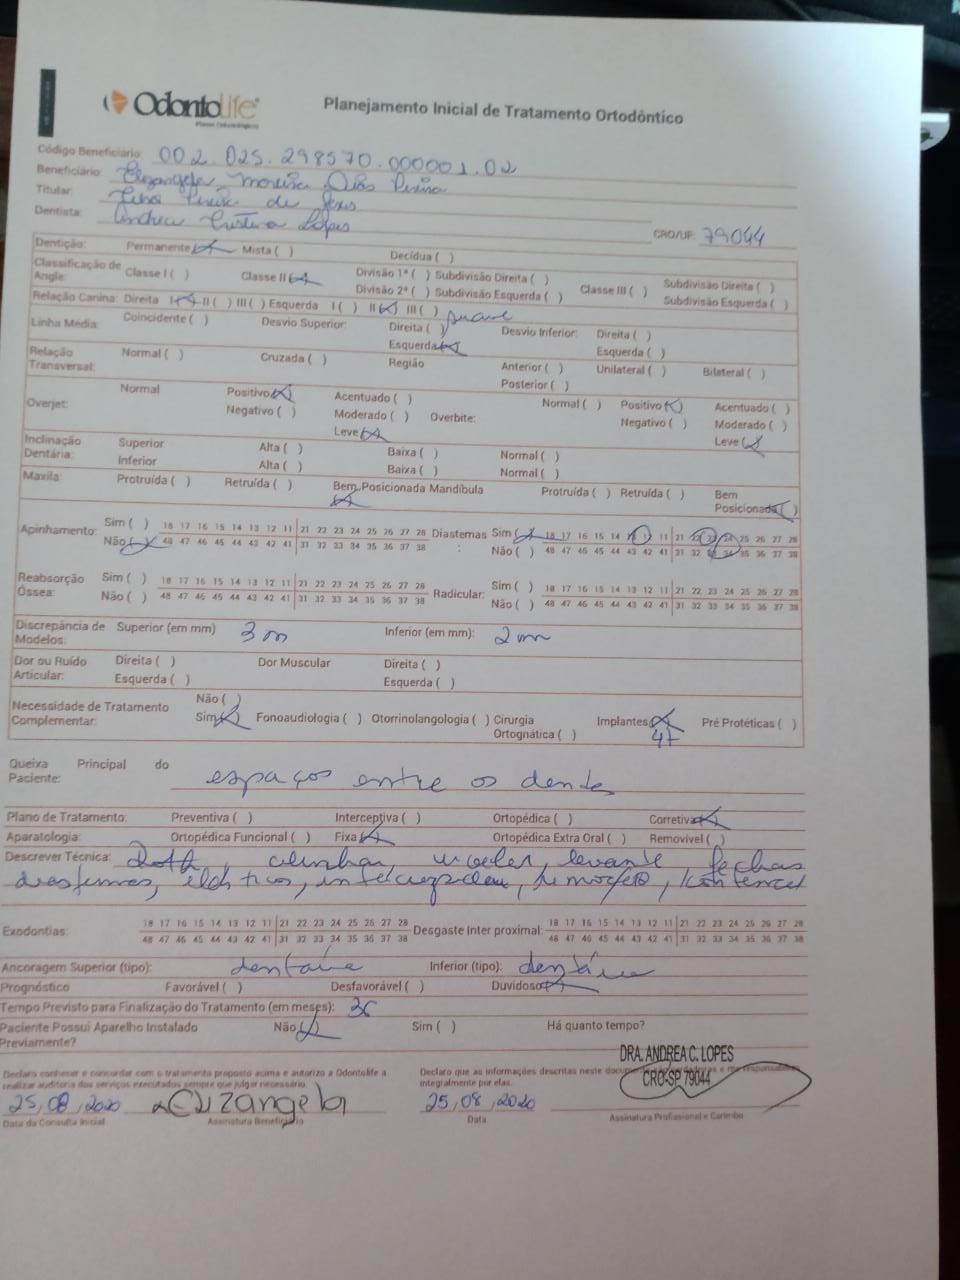 OdontoLife
Planos Odontológicos
Planejamento Inicial de Tratamento Ortodôntico
Código Beneficiário: 002.025.298570.000001.02
Beneficiário: Moreira Dias
Titular: de Jesus
Dentista: Andrea Cristina Lopes CRO/UF: 79044
Dentição: Permanente (X) Mista ( ) Decídua ( )
Classificação de Angle: Classe I ( ) Classe II (X) Divisão 1ª ( ) Subdivisão Direita ( ) Classe III ( ) Subdivisão Direita ( )
Divisão 2ª ( ) Subdivisão Esquerda ( ) Subdivisão Esquerda ( )
Relação Canina: Direita I (X) II ( ) III ( ) Esquerda I ( ) II (X) III ( )
Linha Média: Coincidente ( ) Desvio Superior: Direita ( ) suave Desvio Inferior: Direita ( )
Esquerda (X) Esquerda ( )
Relação Transversal: Normal ( ) Cruzada ( ) Região Anterior ( ) Unilateral ( ) Bilateral ( )
Posterior ( )
Overjet: Normal Positivo (X) Acentuado ( ) Overbite: Normal ( ) Positivo (X) Acentuado ( )
Negativo ( ) Moderado ( ) Negativo ( ) Moderado ( )
Leve (X) Leve (X)
Inclinação Dentária: Superior Alta ( ) Baixa ( ) Normal ( )
Inferior Alta ( ) Baixa ( ) Normal ( )
Maxila: Protruída ( ) Retruída ( ) Bem Posicionada (X) Mandíbula Protruída ( ) Retruída ( ) Bem Posicionada (X)
Apinhamento: Sim ( ) 18 17 16 15 14 13 12 11 21 22 23 24 25 26 27 28 Diastemas: Sim (X) 18 17 16 15 14 11 21 22 23 24 25 26 27 28
Não (X) 48 47 46 45 44 43 42 41 31 32 33 34 35 36 37 38 Não ( ) 48 47 46 45 44 43 42 41 31 32 33 34 35 36 37 38
Reabsorção Óssea: Sim ( ) 18 17 16 15 14 13 12 11 21 22 23 24 25 26 27 28 Radicular: Sim ( ) 18 17 16 15 14 13 12 11 21 22 23 24 25 26 27 28
Não ( ) 48 47 46 45 44 43 42 41 31 32 33 34 35 36 37 38 Não ( ) 48 47 46 45 44 43 42 41 31 32 33 34 35 36 37 38
Discrepância de Modelos: Superior (em mm) 3 m Inferior (em mm): 2 mm
Dor ou Ruído Articular: Direita ( ) Dor Muscular Direita ( )
Esquerda ( ) Esquerda ( )
Necessidade de Tratamento Complementar: Não ( )
Sim (X) Fonoaudiologia ( ) Otorrinolangologia ( ) Cirurgia Ortognática ( ) Implantes (X) Pré Protéticas ( )
Queixa Principal do Paciente: espaços entre os dentes
Plano de Tratamento: Preventiva ( ) Interceptiva ( ) Ortopédica ( ) Corretiva (X)
Aparatologia: Ortopédica Funcional ( ) Fixa (X) Ortopédica Extra Oral ( ) Removível ( )
Descrever Técnica: Roth, alinhar, nivelar, levante, fechar
diastemas, elásticos, intercuspidação, remoção, contencao
Exodontias: 18 17 16 15 14 13 12 11 21 22 23 24 25 26 27 28 Desgaste Inter proximal: 18 17 16 15 14 13 12 11 21 22 23 24 25 26 27 28
48 47 46 45 44 43 42 41 31 32 33 34 35 36 37 38 48 47 46 45 44 43 42 41 31 32 33 34 35 36 37 38
Ancoragem Superior (tipo): dentária Inferior (tipo): dentária
Prognóstico Favorável ( ) Desfavorável ( ) Duvidoso (X)
Tempo Previsto para Finalização do Tratamento (em meses): 36
Paciente Possui Aparelho Instalado Previamente? Não (X) Sim ( ) Há quanto tempo?
Declaro conhecer e concordar com o tratamento proposto acima e autorizo a Odontolife a
realizar auditoria dos serviços executados sempre que julgar necessário.
Declaro que as informações descritas neste documento
integralmente por elas.
DRA. ANDREA C. LOPES
CRO-SP 79044
25,08,2020 Elizangela 25,08,2020
Data da Consulta Inicial Assinatura Beneficiário Data Assinatura Profissional e Carimbo